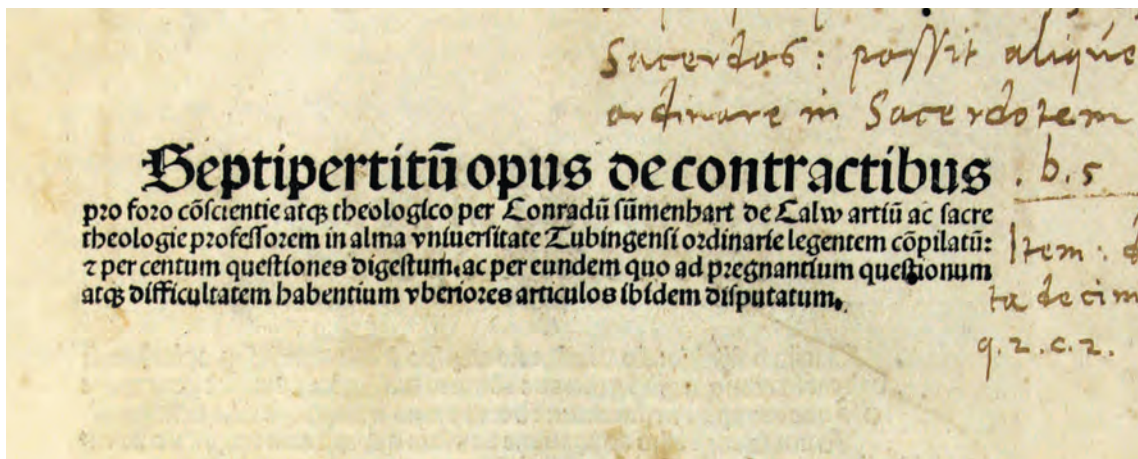 Sacerdos: possit aliquē
ordinare in Sacerdotem
Septipertitū opus de contractibus
.b.5
pro foro cōscientie atqꝫ theologico per Conradū sūmenhart de Calw artiū ac sacre
theologie professorem in alma vniuersitate Tubingensi ordinarie legentem cōpilatū:
Item:
⁊ per centum questiones digestum. ac per eundem quo ad pregnantium questionum
atqꝫ difficultatem habentium vberiores articulos ibidem disputatum.
ta decim
q.2.c.2.